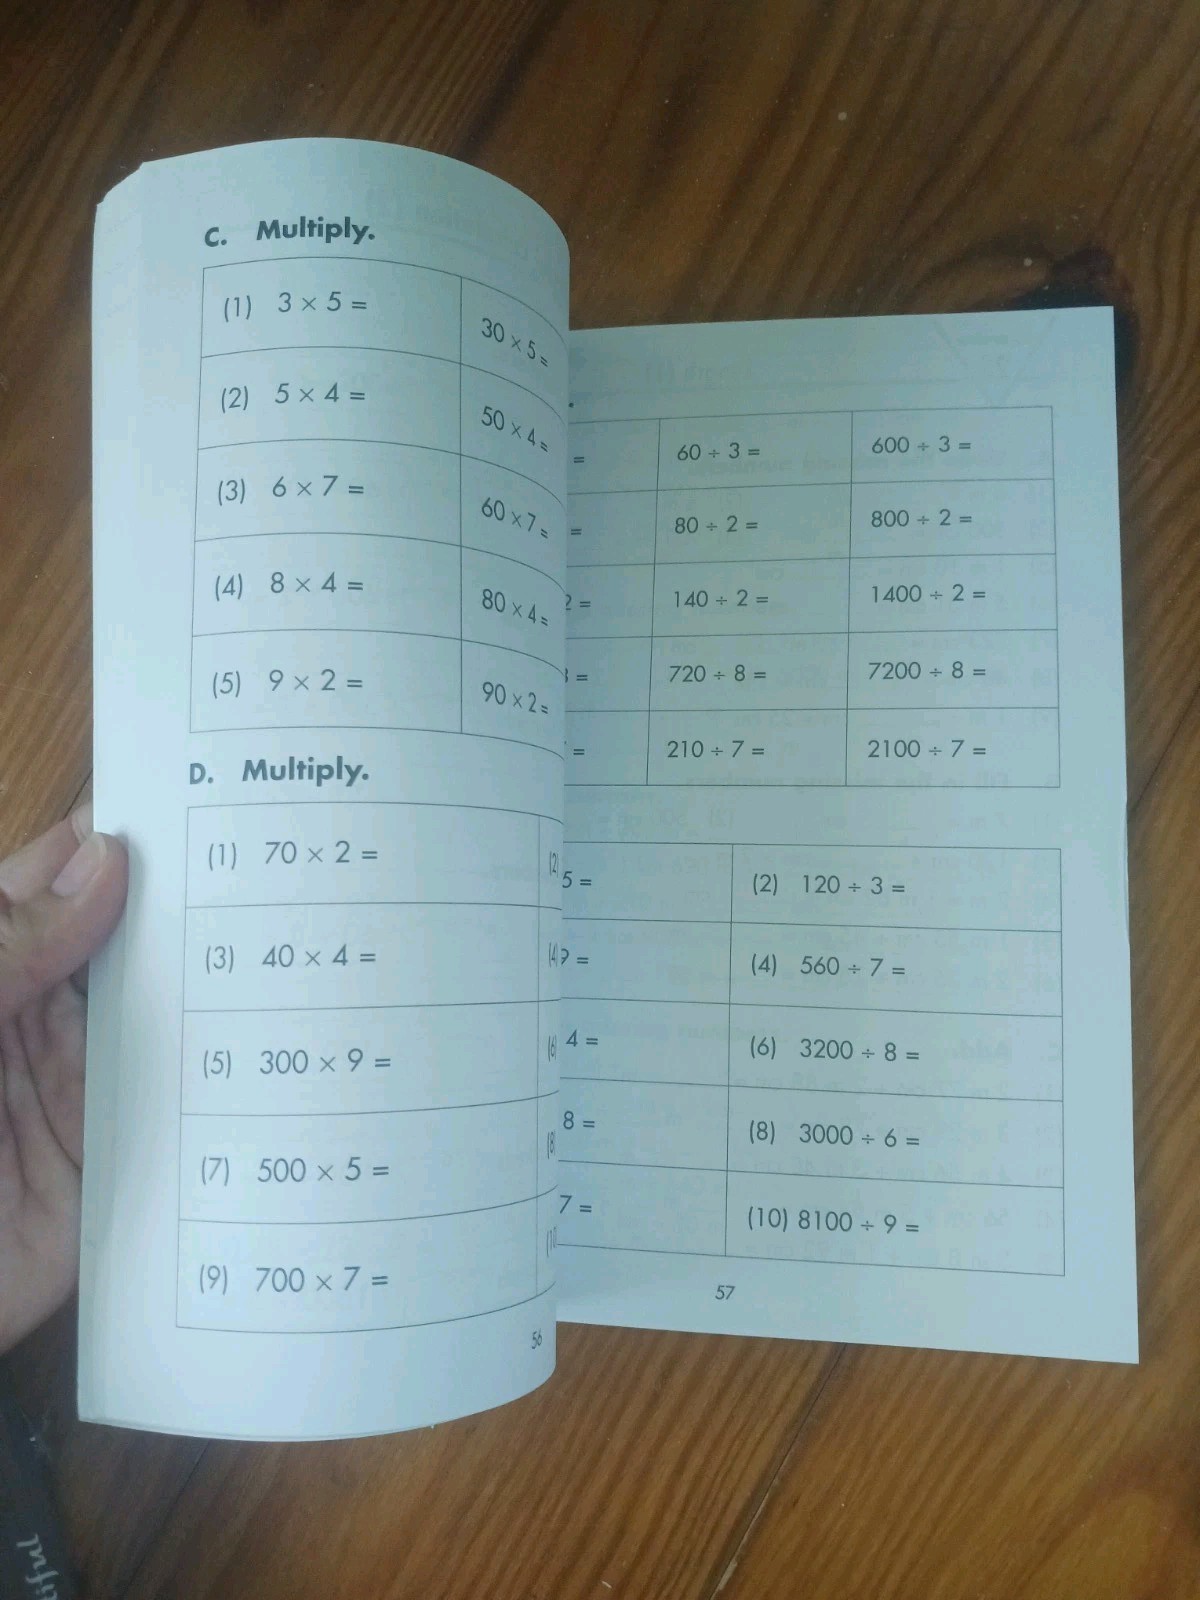 C. Multiply.
(1) 3 × 5 = 30 × 5 =
(2) 5 × 4 = 50 × 4 =
(3) 6 × 7 = 60 × 7 =
(4) 8 × 4 = 80 × 4 =
(5) 9 × 2 = 90 × 2 =
D. Multiply.
(1) 70 × 2 = (2)
(3) 40 × 4 = (4)
(5) 300 × 9 = (6)
(7) 500 × 5 = (8)
(9) 700 × 7 = (10)
56
= 60 ÷ 3 = 600 ÷ 3 =
= 80 ÷ 2 = 800 ÷ 2 =
2 = 140 ÷ 2 = 1400 ÷ 2 =
= 720 ÷ 8 = 7200 ÷ 8 =
= 210 ÷ 7 = 2100 ÷ 7 =
5 = (2) 120 ÷ 3 =
= (4) 560 ÷ 7 =
4 = (6) 3200 ÷ 8 =
8 = (8) 3000 ÷ 6 =
7 = (10) 8100 ÷ 9 =
57